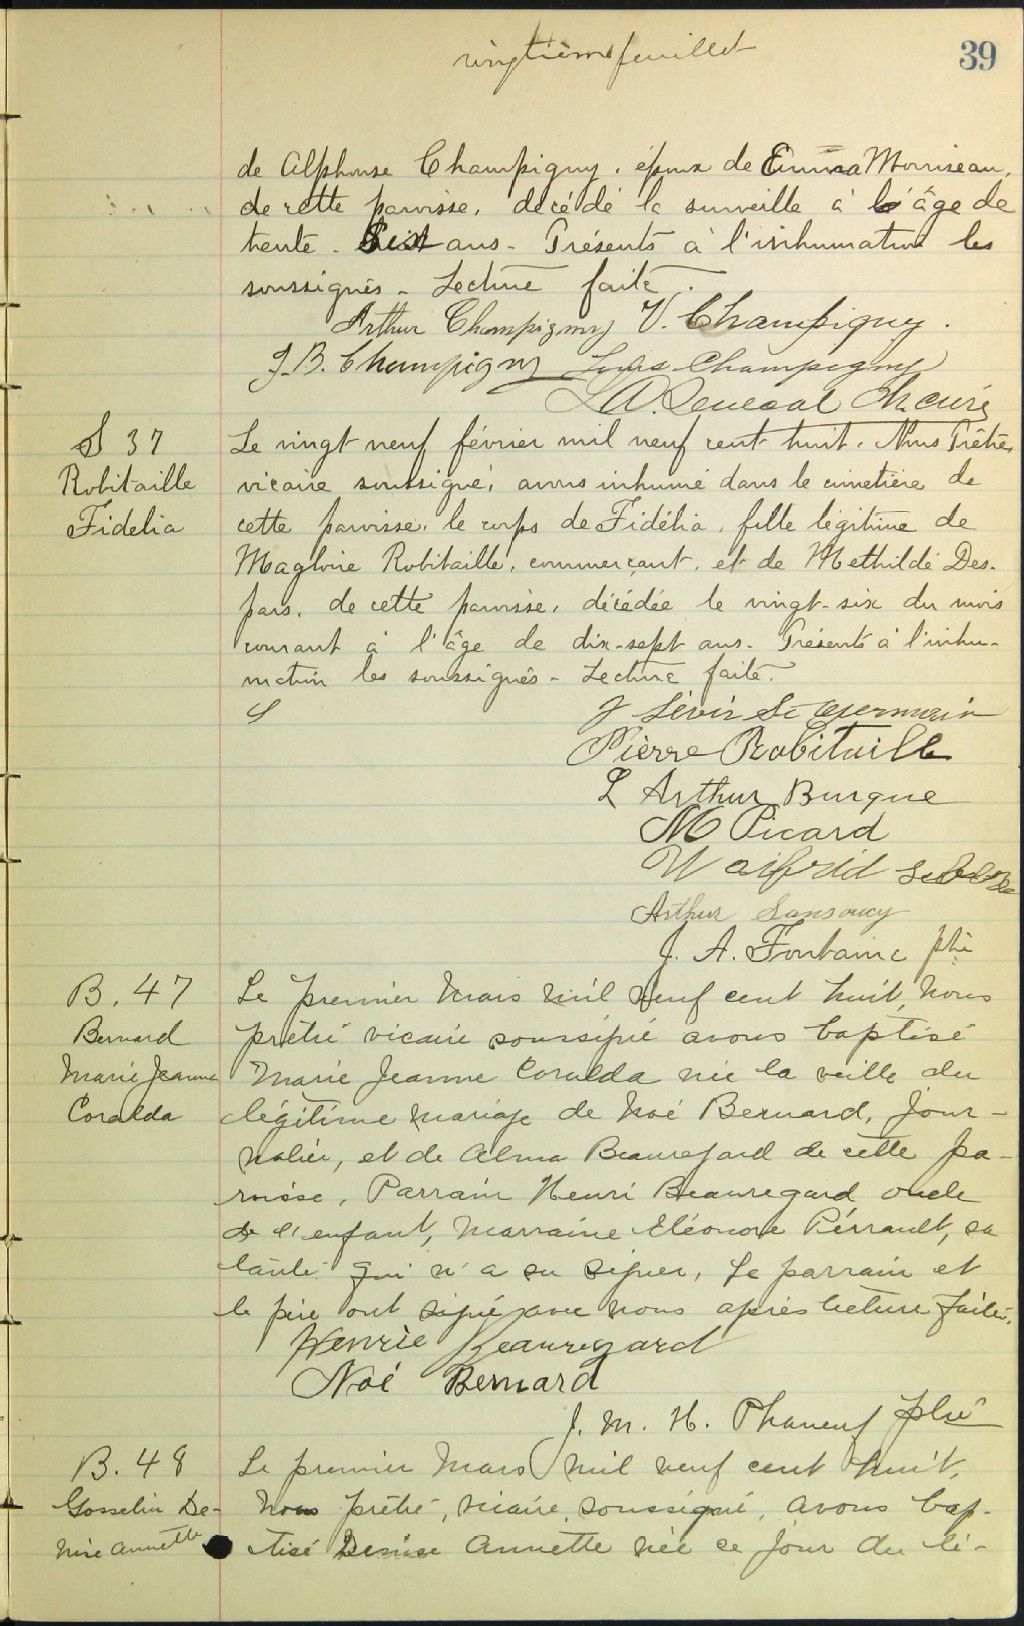 vingtième feuillet
39
de Alphonse Champigny, époux de Emma Morriseau,
de cette paroisse, décédé la surveille à l'âge de
trente - ans - Présents à l'inhumation les
soussignés - Lecture faite.
Arthur Champigny V. Champigny.
J.B. Champigny Louis Champigny
L.A. Senecal Ch. curé
S 37
Robitaille
Fidelia
Le vingt neuf février mil neuf cent huit, Nous Prêtre
vicaire soussigné, avons inhumé dans le cimetière de
cette paroisse, le corps de Fidélia, fille légitime de
Magloire Robitaille, commerçant, et de Methilde Des-
pars, de cette paroisse, décédée le vingt-six du mois
courant à l'âge de dix-sept ans - Présents à l'inhu-
mation les soussignés - Lecture faite.
J Lévis St Germain
Pierre Robitaille
L Arthur Burque
M Picard
Walfrid
Arthur Sansoucy
J. A. Fontaine ptre
B. 47
Bernard
Marie Jeanne
Coralda
Le premier Mars mil neuf cent huit, nous
prêtre vicaire soussigné avons baptisé
Marie Jeanne Coralda née la veille du
légitime mariage de Noé Bernard, jour-
nalier, et de Alma Beauregard de cette pa-
roisse, Parrain Henri Beauregard oncle
de l'enfant, Marraine Eléonore Pérrault, sa
tante qui n'a su signer, Le parrain et
le père ont signé avec nous après lecture faite.
Henrie Beauregard
Noé Bernard
J. M. H. Phaneuf ptre
B. 48
Gosselin De-
nise Annette
Le premier Mars mil neuf cent huit,
Nous prêtre, vicaire, soussigné, avons bap-
tisé Denise Annette née ce jour du lé-